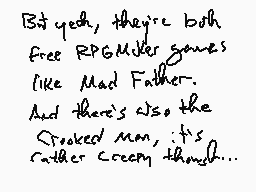 But yeah, they're both
free RPGMaker games
like Mad Father.
And there's also the
Crooked Man, it's
rather creepy though...